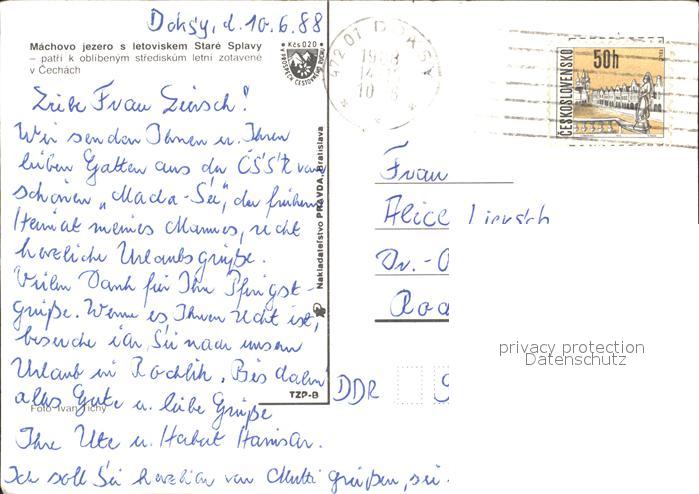 Doksy, d. 10.6.88
Máchovo jezero s letoviskem Staré Splavy
– patří k oblíbeným střediskům letní zotavené
v Čechách
Kčs 0.20
Liebe Frau Liersch!
Wir senden Ihnen u. Ihrem
lieben Gatten aus der ČSSR vom
schönen „Macha-See", der früheren
Heimat meines Mannes, recht
herzliche Urlaubsgrüße.
Vielen Dank für Ihre Pfingst-
grüße. Wenn es Ihnen recht ist,
besuche ich Sie nach unserem
Urlaub in Rochlitz. Bis dahin
alles Gute u. liebe Grüße
Foto Ivan Tichý
Ihre Ute u. Herbert
Ich soll Sie herzlich von Mutti grüßen, sei
Nakladateľstvo PRAVDA, Bratislava
TZP-B
472 01 DOKSY
1988
ČESKOSLOVENSKO
50h
Frau
Alice Liersch
Dr.-
DDR
privacy protection
Datenschutz